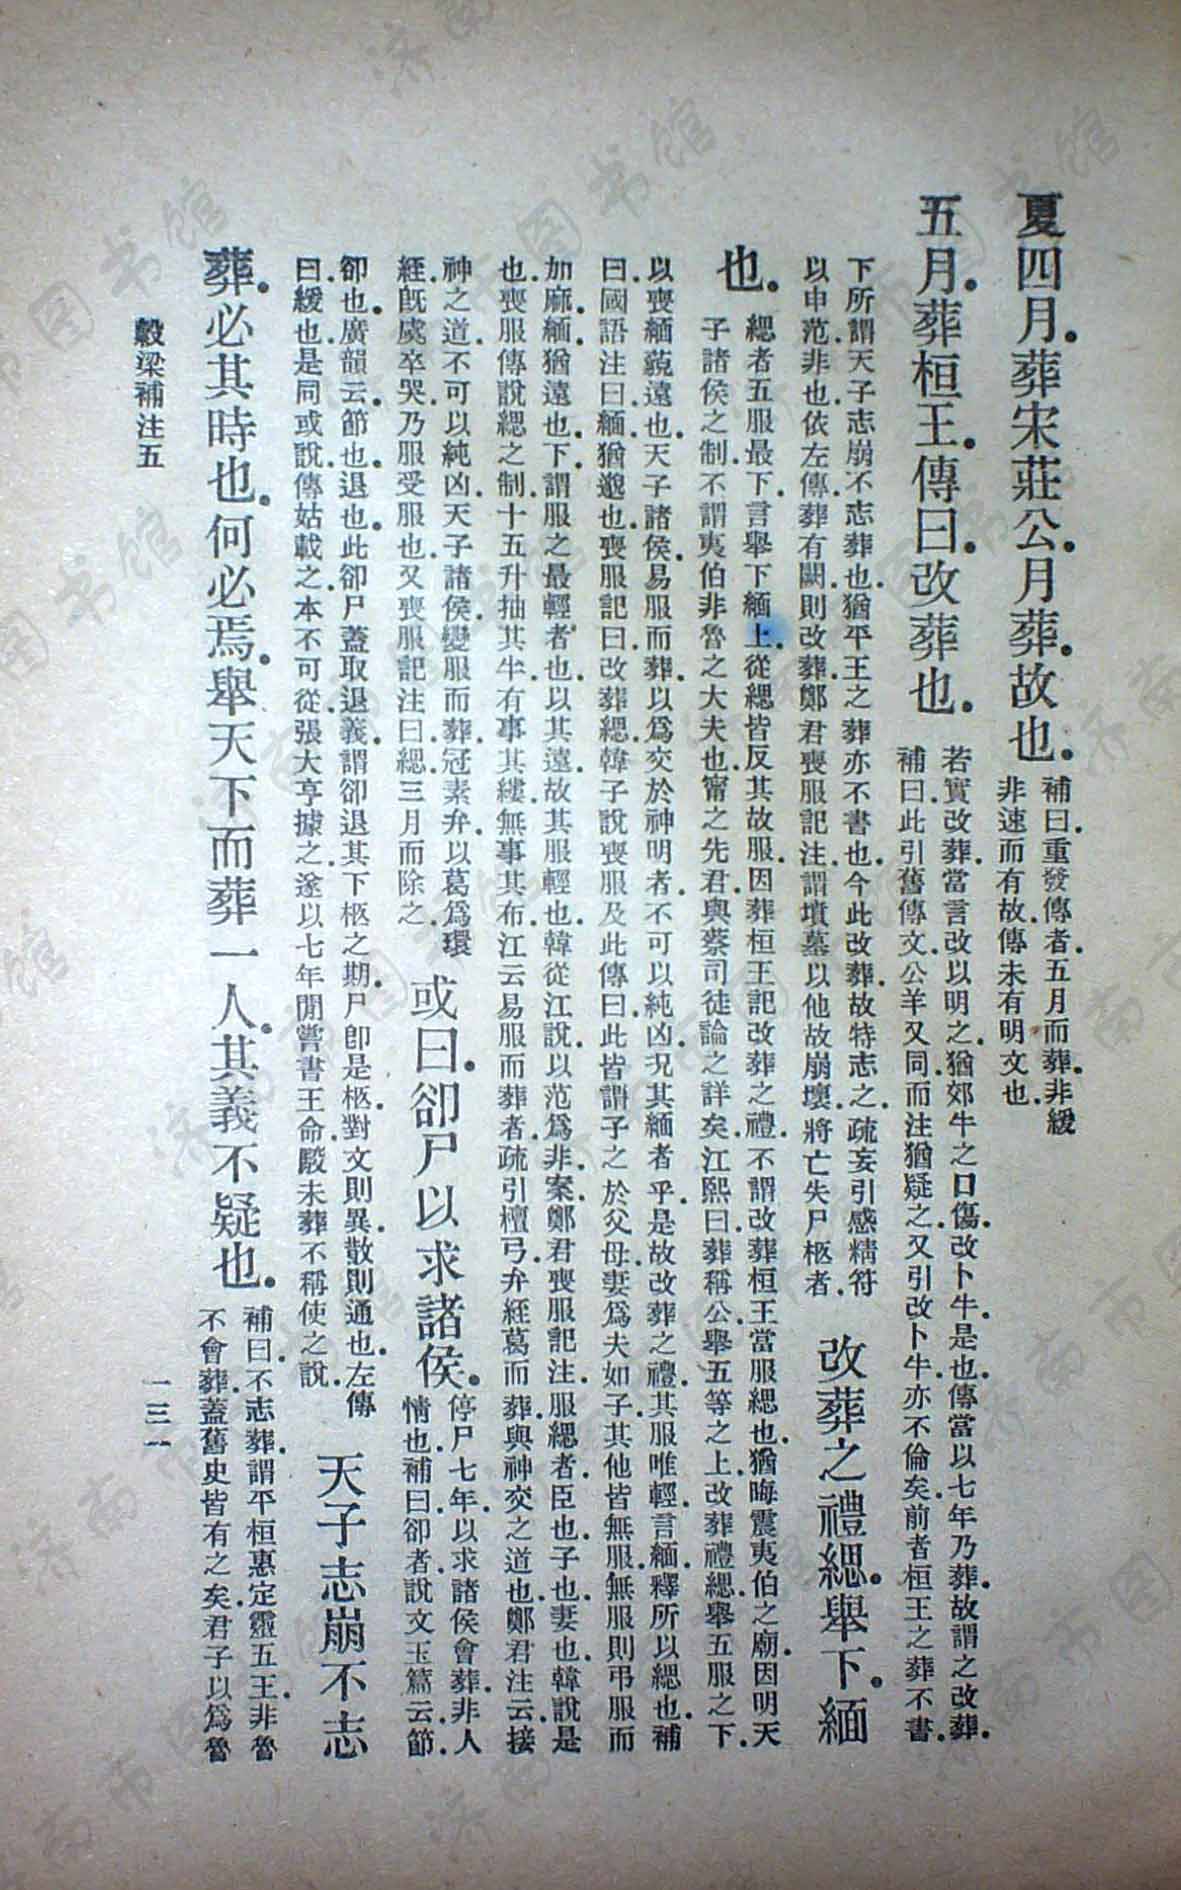 夏四月．葬宋莊公．月葬．故也．
補曰．重發傳者．五月而葬．非緩
非速而有故．傳未有明文也．
五月．葬桓王．傳曰．改葬也．
若實改葬．當言改以明之．猶郊牛之口傷．改卜牛．是也．傳當以七年乃葬．故謂之改葬．
補曰．此引舊傳文．公羊又同．而注猶疑之．又引改卜牛．亦不倫矣．前者桓王之葬不書．
下所謂天子志崩不志葬也．猶平王之葬亦不書也．今此改葬．故特志之．疏妄引感精符
以申范．非也．依左傳．葬有闕．則改葬．鄭君喪服記注．謂墳墓以他故崩壞．將亡失尸柩者．
改葬之禮緦．舉下．緬
也．
緦者五服最下．言舉下緬上．從緦皆反其故服．因葬桓王．記改葬之禮．不謂改葬桓王當服緦也．猶晦震夷伯之廟．因明天
子諸侯之制．不謂夷伯非魯之大夫也．甯之先君．與蔡司徒論之詳矣．江熙曰．葬稱公．舉五等之上．改葬禮緦．舉五服之下．
以喪緬藐遠也．天子諸侯．易服而葬．以爲交於神明者．不可以純凶．況其緬者乎．是故改葬之禮．其服唯輕．言緬．釋所以緦也．補
曰．國語注曰．緬．猶邈也．喪服記曰．改葬緦．韓子說喪服及此傳曰．此皆謂子之於父母．妻爲夫如子．其他皆無服．無服則弔服而
加麻．緬．猶遠也．下．謂服之最輕者也．以其遠．故其服輕也．韓從江說．以范爲非．案鄭君喪服記注．服緦者．臣也．子也．妻也．韓說是
也．喪服傳說緦之制．十五升抽其半．有事其縷．無事其布．江云易服而葬者．疏引檀弓．弁絰葛而葬．與神交之道也．鄭君注云．接
神之道．不可以純凶．天子諸侯．變服而葬．冠素弁．以葛爲環
絰．既虞卒哭．乃服受服也．又喪服記注曰．緦．三月而除之．
或曰．卻尸以求諸侯．
停尸七年．以求諸侯會葬．非人
情也．補曰．卻者．說文玉篇云．節
卻也．廣韻云．節也．退也．此卻尸．蓋取退義．謂卻退其下柩之期．尸卽是柩．對文則異．散則通也．左傳
曰．緩也．是同或說．傳姑載之．本不可從．張大亨據之．遂以七年閒嘗書王命．毉未葬不稱使之說．
天子志崩不志
葬．必其時也．何必焉．舉天下而葬一人．其義不疑也．
補曰．不志葬．謂平桓惠定靈五王．非魯
不會葬．蓋舊史皆有之矣．君子以爲魯
穀梁補注五
一三一